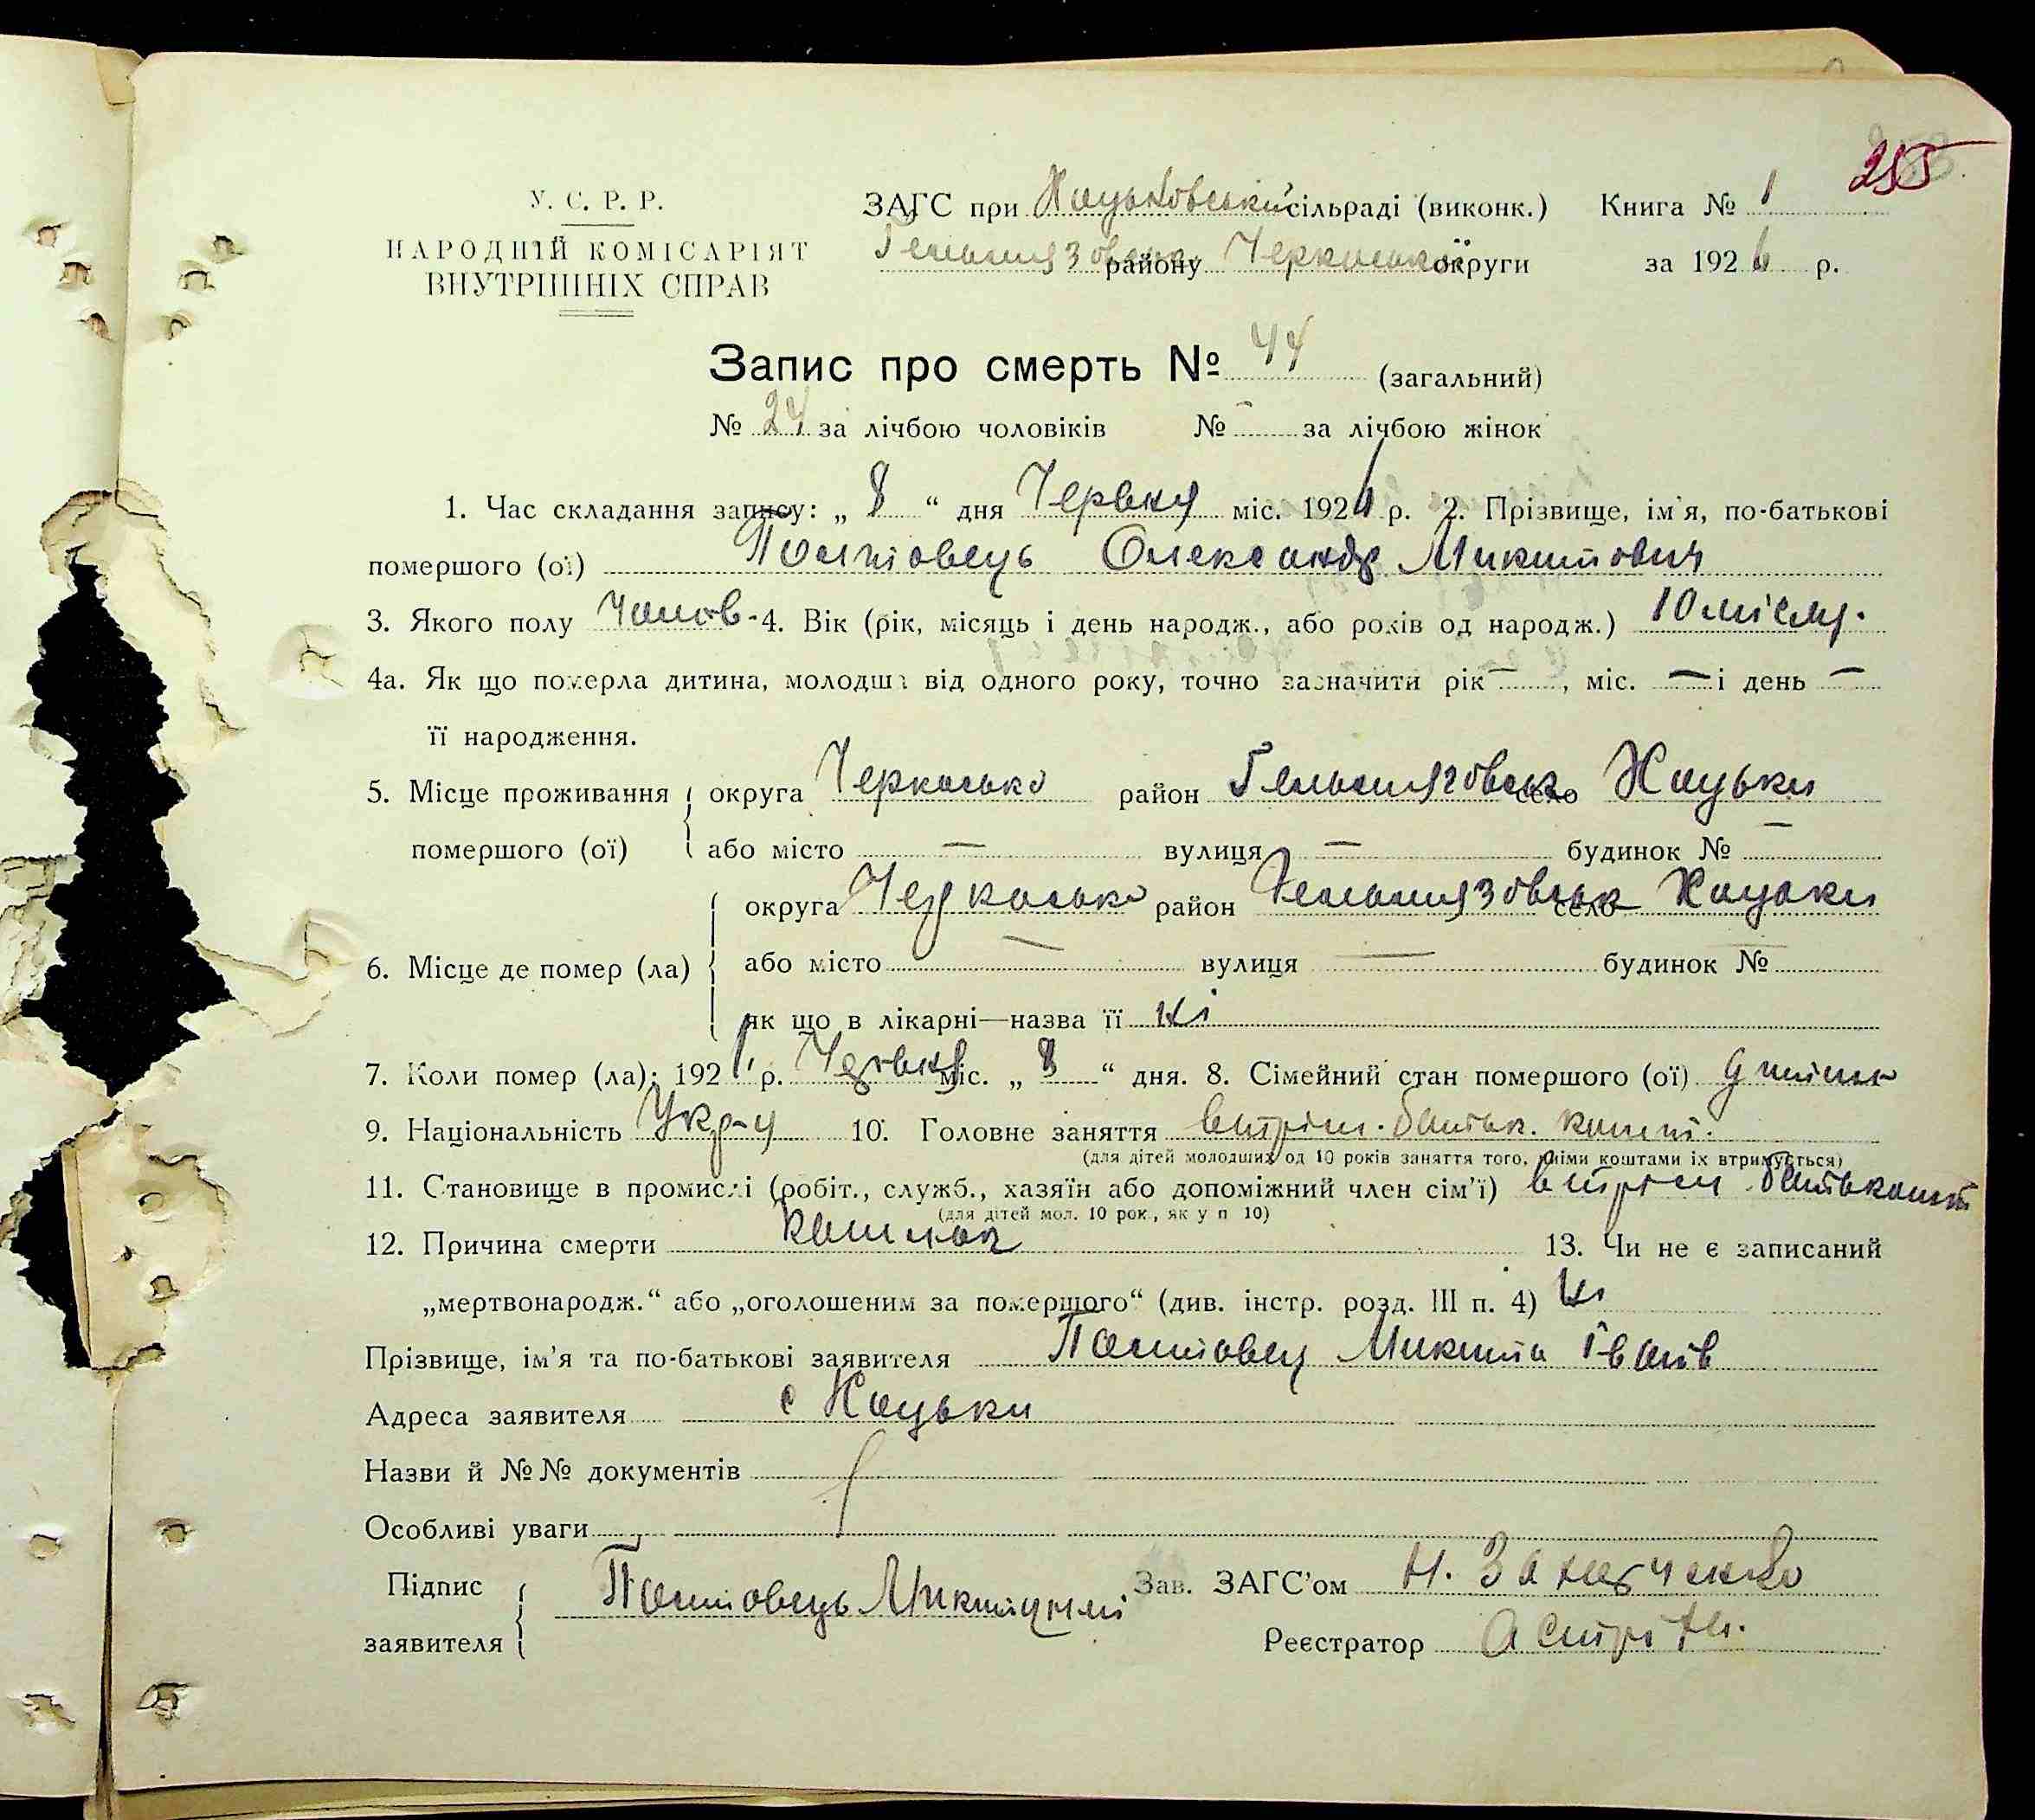 255
У. С. Р. Р.
НАРОДНІЙ КОМІСАРІЯТ
ВНУТРІШНІХ СПРАВ
ЗАГС при Хоцьковській сільраді (виконк.) Книга № 1
Гельмязовськ району Черкаської округи за 1926 р.
Запис про смерть № 44 (загальний)
№ 24 за лічбою чоловіків № - за лічбою жінок
1. Час складання запису: „ 8 “ дня Червня міс. 1926 р. 2. Прізвище, ім'я, по-батькові
помершого (ої) Полтовець Олександр Микитович
3. Якого полу Чолов. 4. Вік (рік, місяць і день народж., або років од народж.) 10 місяц.
4а. Як що померла дитина, молодша від одного року, точно зазначити рік —, міс. — і день —
її народження.
5. Місце проживання округа Черкасько район Гельмязовськ село Хоцьки
помершого (ої) або місто — вулиця — будинок № —
округа Черкасько район Гельмязовськ село Хоцьки
6. Місце де помер (ла) або місто — вулиця — будинок №
як що в лікарні—назва її ні
7. Коли помер (ла): 1926 р. Червня міс. „ 8 “ дня. 8. Сімейний стан помершого (ої)
9. Національність Укр-ц 10. Головне заняття батьк. кошт.
(для дітей молодших од 10 років заняття того, якіми коштами їх втримується)
11. Становище в промислі (робіт., служб., хазяїн або допоміжний член сім'ї) батьк кошт
(для дітей мол. 10 рок., як у п 10)
12. Причина смерти кашлюк 13. Чи не є записаний
„мертвонародж.“ або „оголошеним за помершого“ (див. інстр. розд. III п. 4) Ні
Прізвище, ім'я та по-батькові заявителя Полтовец Микита Іванів
Адреса заявителя с Хоцьки
Назви й №№ документів
Особливі уваги
Підпис Полтовець Зав. ЗАГС'ом Н. Захарченко
заявителя Реєстратор